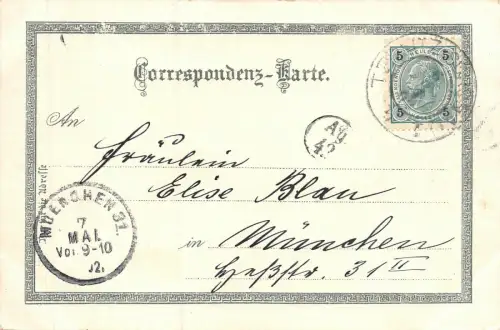 Correspondenz-Karte.
5 5
5 5
An
Fräulein
Elise Blau
in München
Heßstr. 31 II
Adresse
MUENCHEN 31.
7
MAI.
Vor. 9-10
42